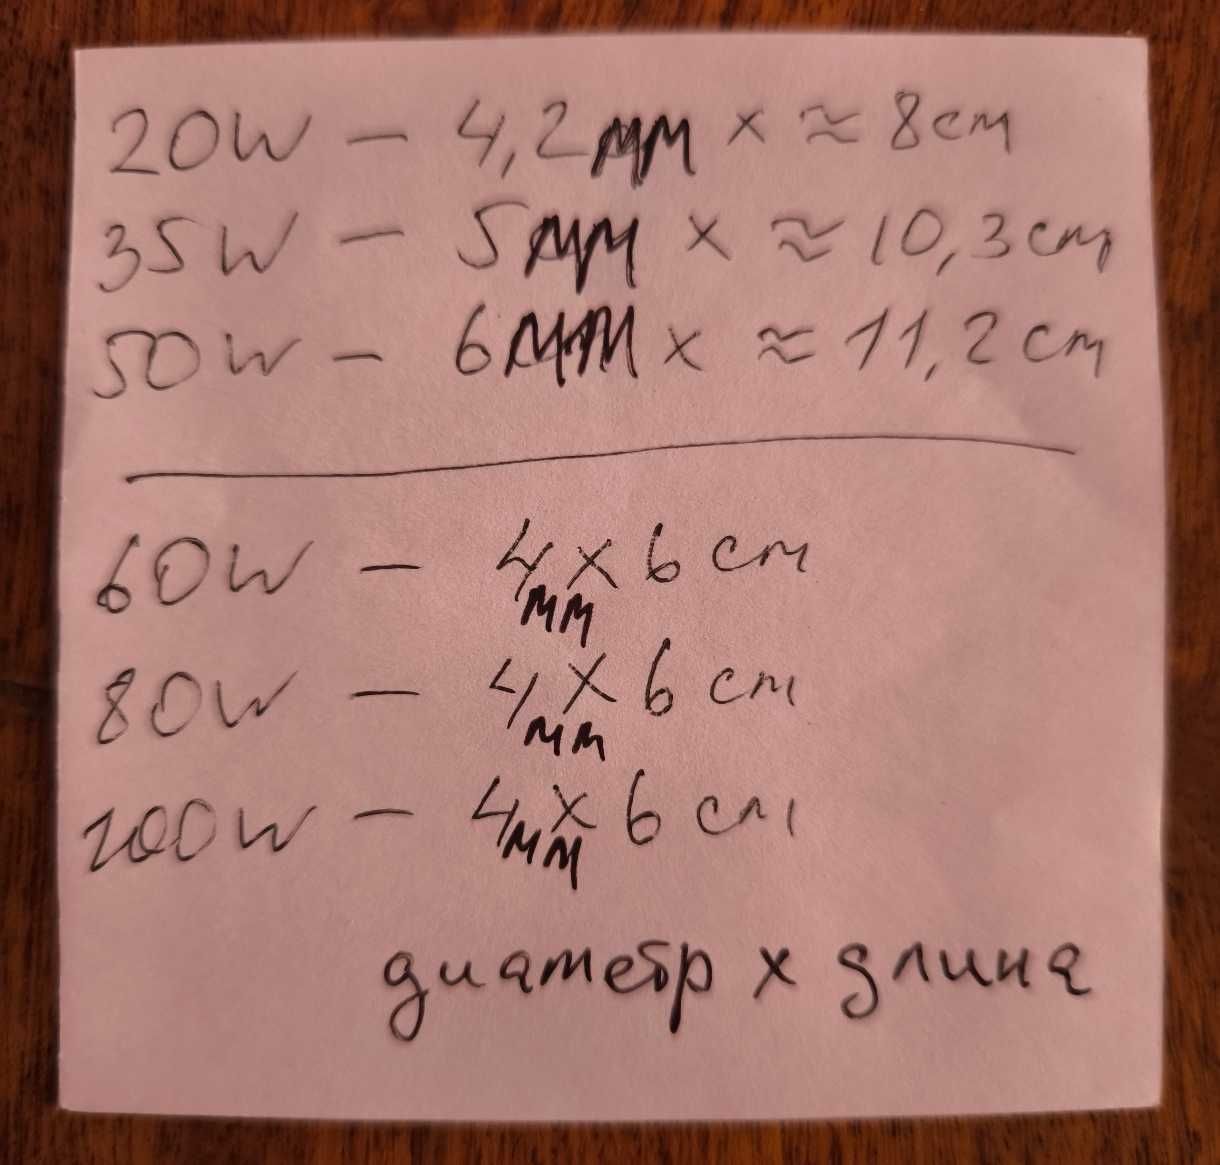 20W — 4,2мм x ≈ 8cm
35W — 5мм x ≈ 10,3cm
50W — 6мм x ≈ 11,2cm
60W — 4мм x 6 cm
80W — 4мм x 6 cm
100W — 4мм x 6 cm
диаметр x длина